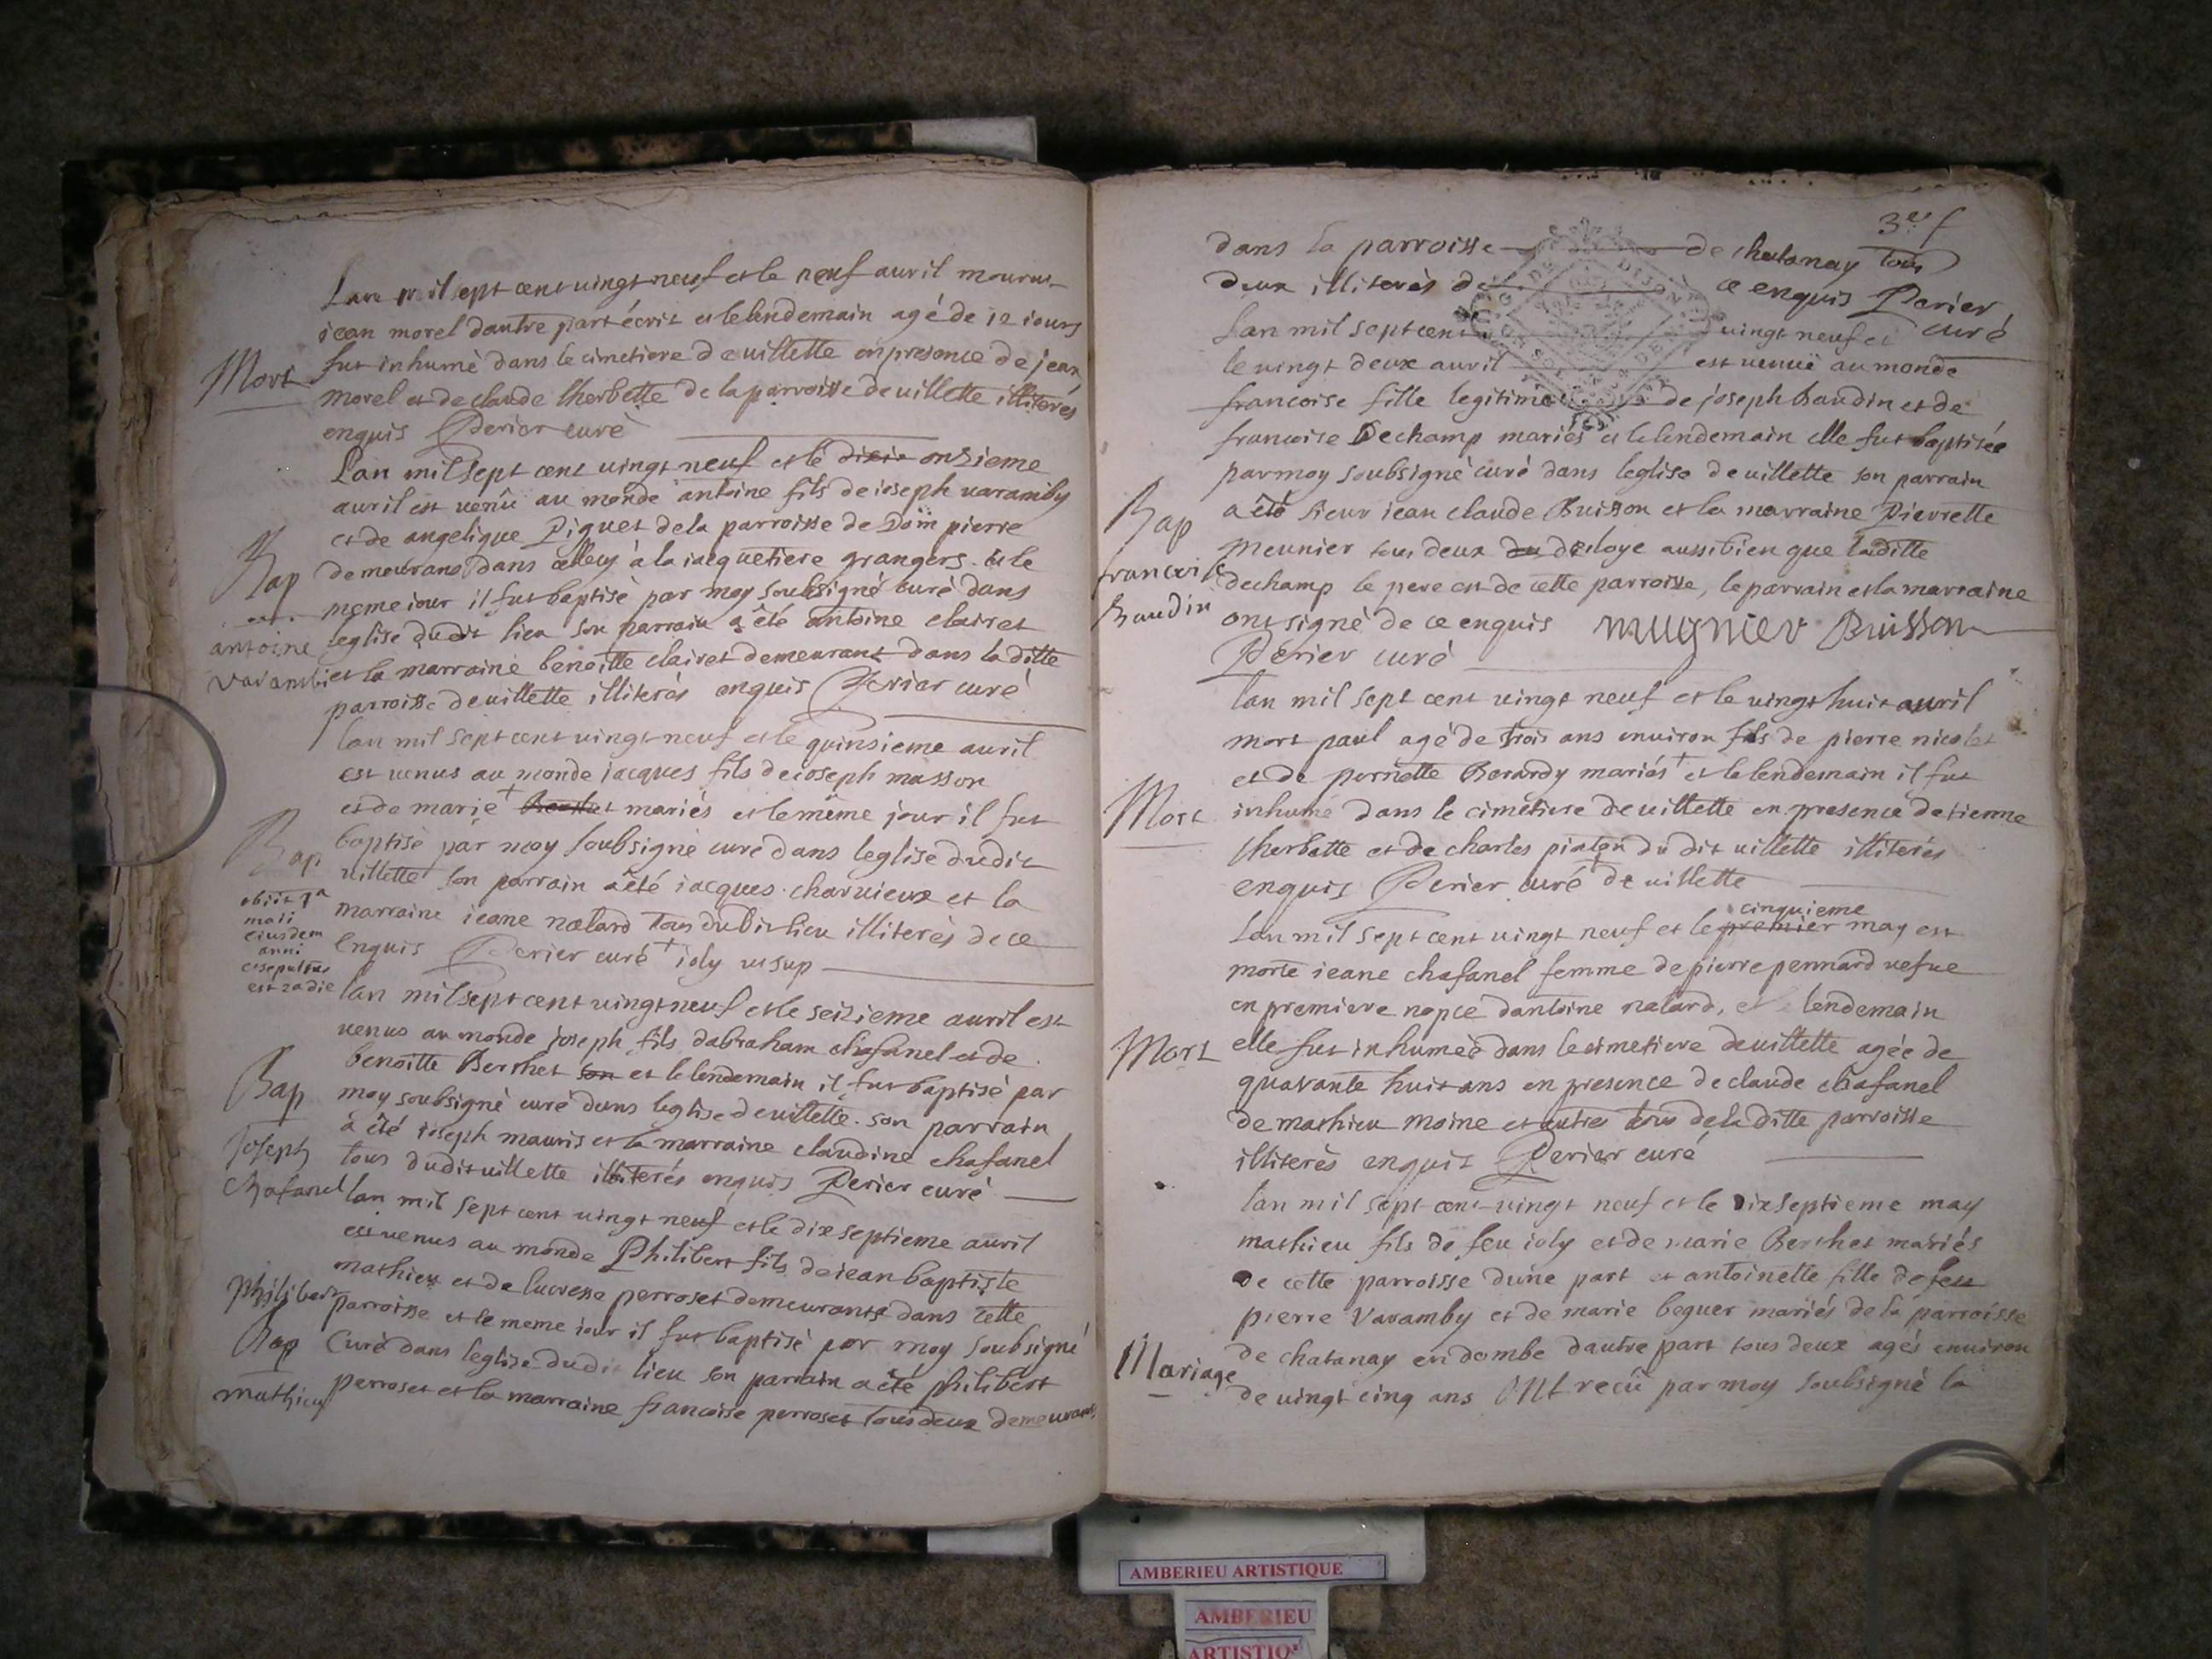 Mort
Lan mil sept cent vingt neuf et le neuf avril mourut
jean morel dautre part écrit et le lendemain agé de 12 iours
fut inhumé dans le cimetiere de villette en presence de jean
morel et de claude lherbette de la parroisse de villette illiterés
enquis Perier curé
Lan mil sept cent vingt neuf et le dixie onzieme
avril est venû au monde antoine fils de ioseph varamby
et de angelique Piquet de la parroisse de Dom pierre
Bap
antoine
varambi
demeurans dans celle cy à la iacquetiere grangers et le
meme iour il fut baptisé par moy soubsigné curé dans
leglise dudit lieu son parrain a été antoine clairet
et la marraine benoitte clairet demeurant dans la ditte
parroisse de villette illiterés enquis Perier curé
lan mil sept cent vingt neuf et le quinsieme avril
est venus au monde jacques fils de ioseph masson
et de marie + mariés et le même jour il fut
Bap
obiit 1a
maii
eiusdem
anni
et sepultus
est 2a die
baptisé par moy soubsigné curé dans leglise dudit
villette son parrain a été iacques charvieux et la
marraine ieane nalard tous dudit lieu illiterés de ce
enquis Perier curé + ioly ut sup
lan mil sept cent vingt neuf et le seizieme avril est
venus au monde joseph fils dabraham chafanel et de
benoitte Berthet son et le lendemain il fut baptisé par
Bap
Joseph
Chafanel
moy soubsigné curé dans leglise de villette son parrain
a été ioseph mauris et la marraine claudine chafanel
tous dudit villette illiterés enquis Perier curé
lan mil sept cent vingt neuf et le dix septieme avril
est venus au monde Philibert fils de iean baptiste
mathieu et de lucresse perroset demeurants dans cette
philibert
Bap
mathieu
parroisse et le meme iour il fut baptisé par moy soubsigné
Curé dans leglise dudit lieu son parrain a été philibert
perroset et la marraine francoise perroset tous deux demeurans
3e f
dans la parroisse de chatanay tous
deux illiterés de ce enquis Perier
curé
Lan mil sept cent vingt neuf et
le vingt deux avril est venuë au monde
francoise fille legitime de joseph Baudin et de
francoise Dechamp mariés et le lendemain elle fut baptisée
par moy soubsigné curé dans leglise de villette son parrain
Bap
francoise
Baudin
a été sieur iean claude Buisson et la marraine Pierrette
meunier tous deux du de loye aussi bien que laditte
dechamp le pere est de cette parroisse, le parrain et la marraine
ont signé de ce enquis mugnier Buisson
Perier curé
lan mil sept cent vingt neuf et le vingt huit avril
mort paul agé de trois ans environ fils de pierre nicolet
et de pernette Berardy mariés + et le lendemain il fut
Mort
inhumé dans le cimetiere de villette en presence detienne
lherbette et de charles piaton du dit villette illiterés
enquis Perier curé + de villette
cinquieme
Lan mil sept cent vingt neuf et le premier may est
morte ieane chafanel femme de pierre pennard vefue
en premiere nopce dantoine nalard, et le lendemain
Mort
elle fut inhumeé dans le cimetiere de villette agée de
quarante huit ans en presence de claude chafanel
de mathieu moine et autres tous de la ditte parroisse
illiterés enquis Perier curé
lan mil sept cent vingt neuf et le dixseptieme may
mathieu fils de feu ioly et de marie Berthet mariés
de cette parroisse dune part et antoinette fille de feu
pierre Varamby et de marie beguer mariés de la parroisse
Mariage
de chatanay en dombe dautre part tous deux agés environ
de vingt cinq ans ont recû par moy soubsigné la
AMBERIEU ARTISTIQUE
AMBERIEU